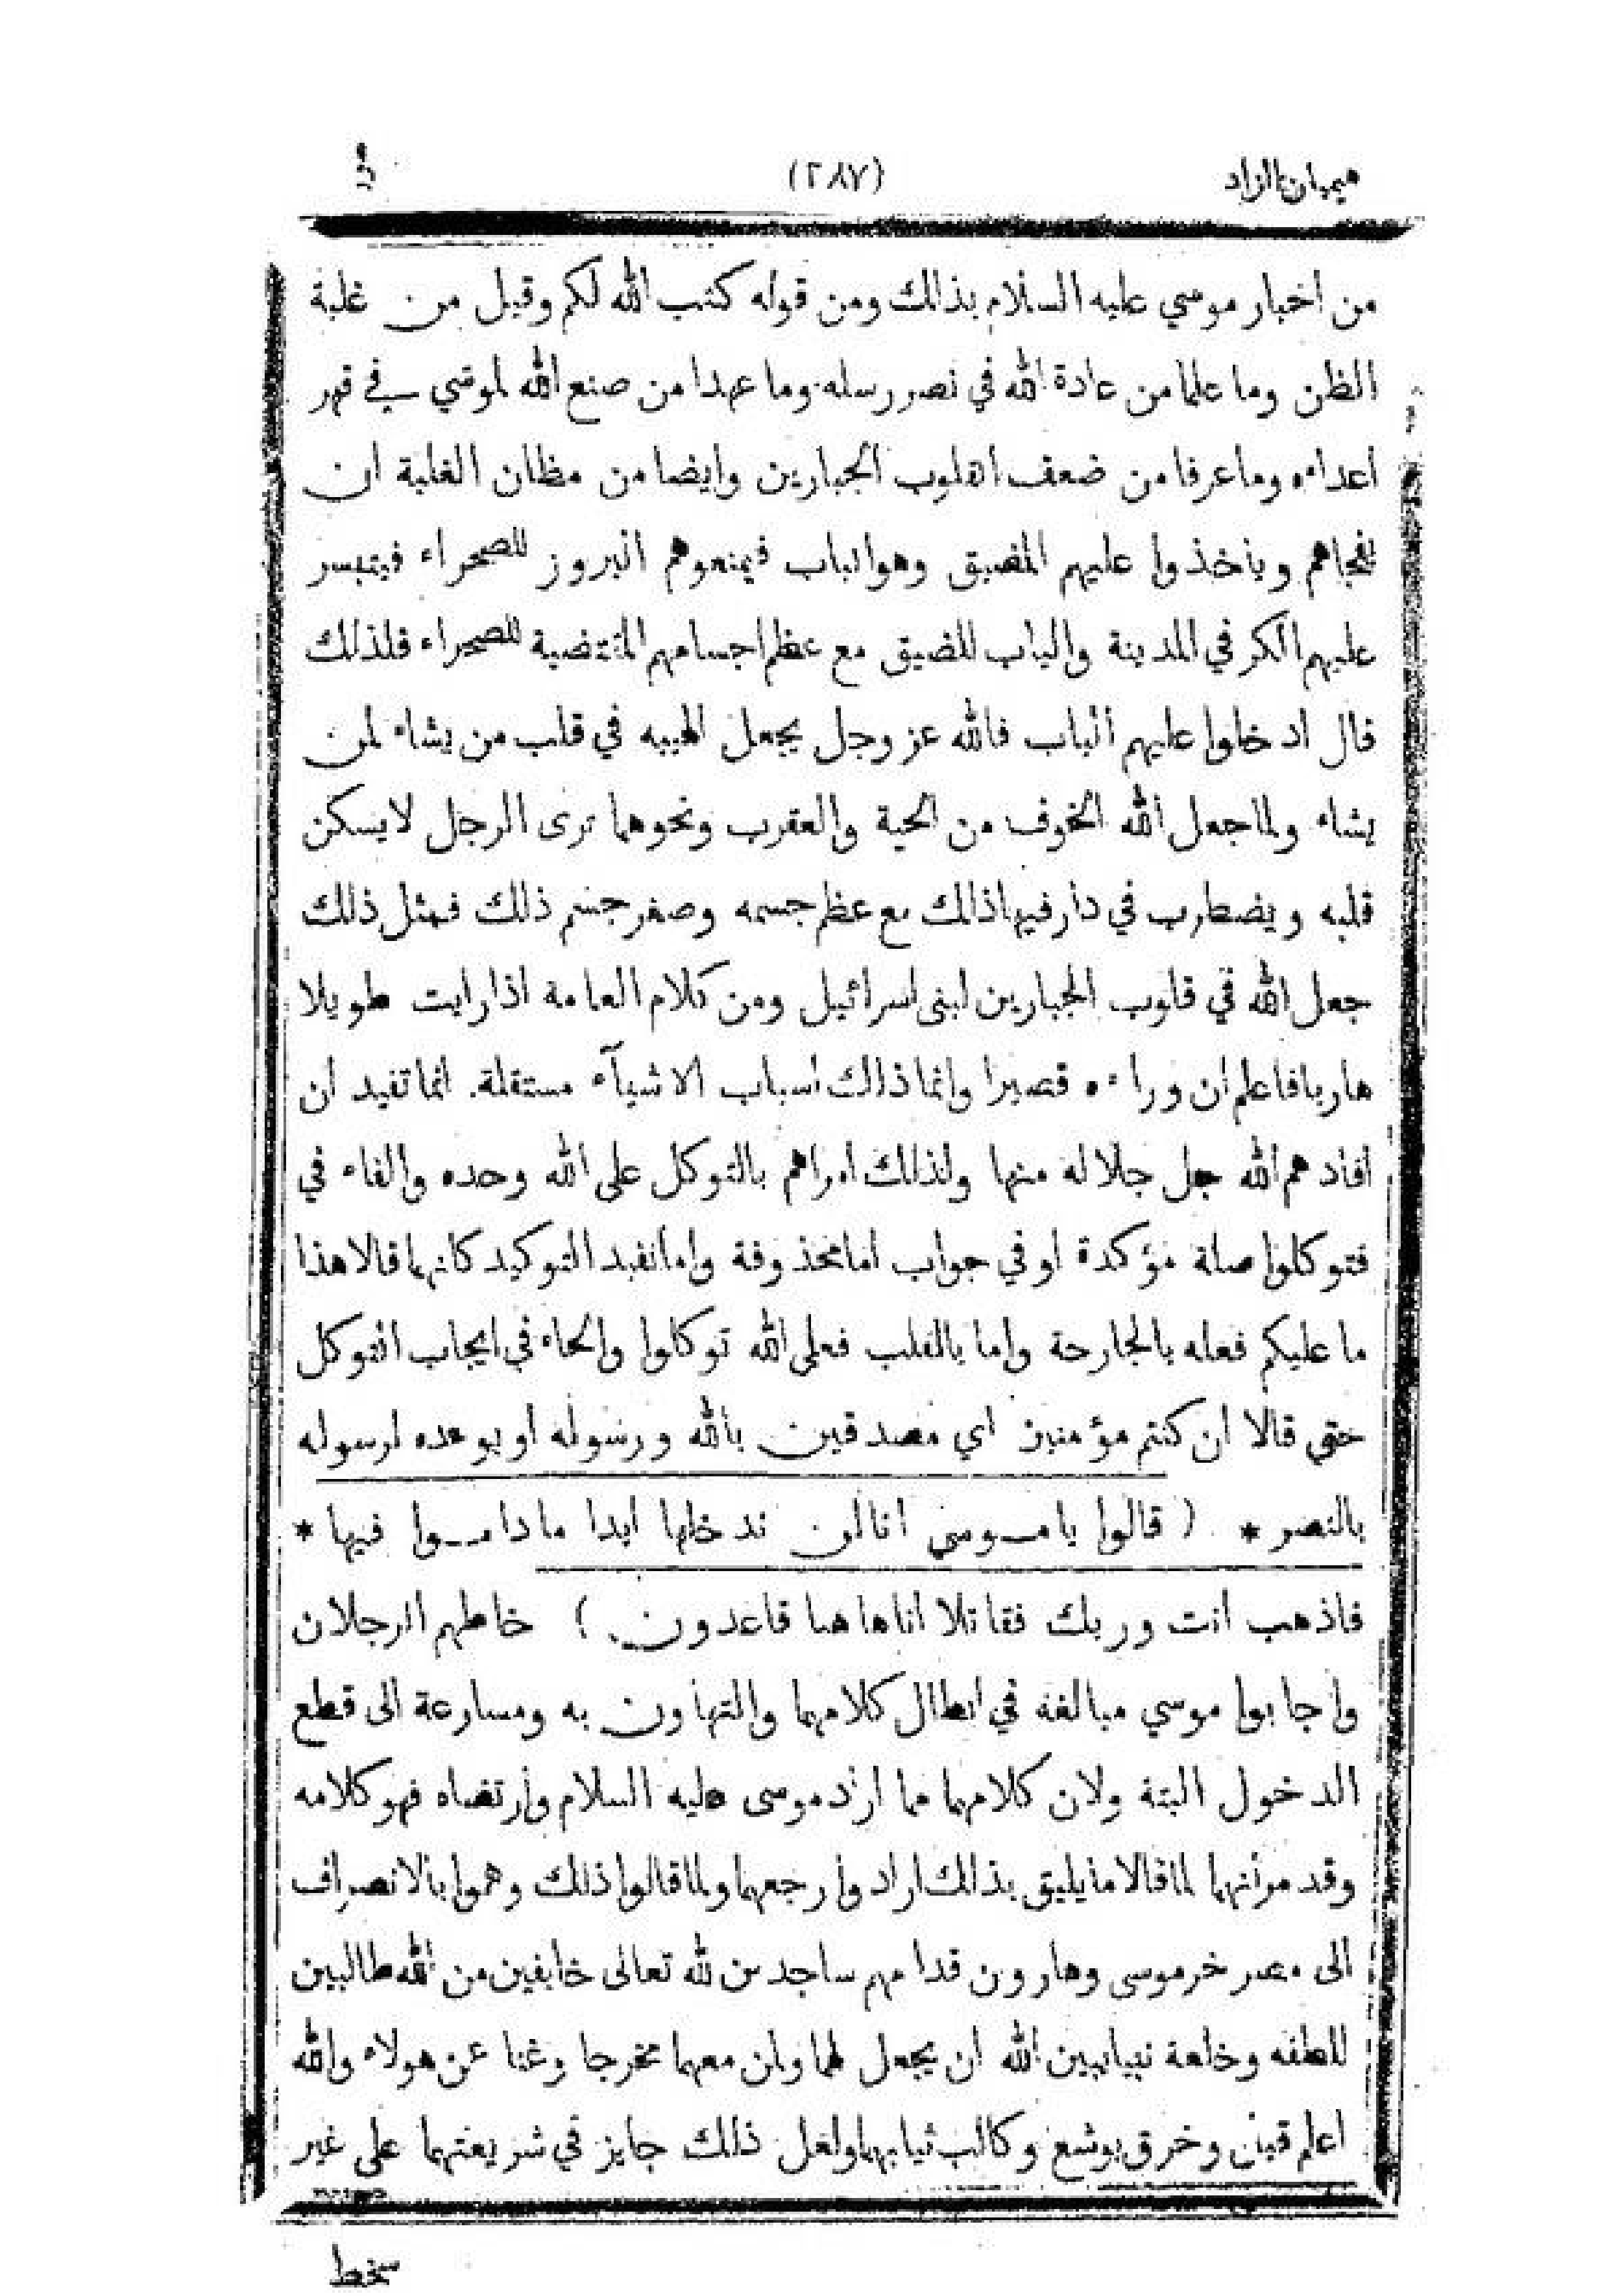 هيميان الزاد (٢٨٧)
من اخبار موسي عليه السلام بذلك ومن قوله كتب الله لكم وقيل من غلبة
الظن وما علما من عادة الله في نصر رسله وما عهدا من صنع الله لموسي في قهر
اعداءه وما عرفا من ضعف قلوب الجبارين وايضا من مظان الغلبة ان
نفجاهم وياخذوا عليهم المضيق وهو الباب فيمنعوهم البروز للصحراء فيتيسر
عليهم الكر في المدينة والباب للضيق مع عظم اجسامهم المقتضية للصحراء فلذلك
قال ادخلوا عليهم الباب فالله عز وجل يجعل الهيبه في قلب من يشاء لمن
يشاء ولما جعل الله الخوف من الحية والعقرب ونحوهما ترى الرجل لا يسكن
قلبه ويضطرب في دار فيها ذلك مع عظم جسمه وصغر جسم ذلك فمثل ذلك
جعل الله في قلوب الجبارين لبنى اسرائيل ومن كلام العامة اذا رايت طويلا
هاربا فاعلم ان وراءه قصيرا وانما ذلك اسباب الاشيآء مستقلة. انما تفيد ان
افادهم الله جل جلاله منها ولذلك امراهم بالتوكل على الله وحده والفاء في
فتوكلوا صلة مؤكدة او في جواب اما محذوفة واما تفيد التوكيد كانهما قالا هذا
ما عليكم فعله بالجارحة واما بالقلب فعلى الله توكلوا والحاء في ايجاب التوكل
حتى قالا ان كنتم مؤمنين اي مصدقين بالله ورسوله او بوعده لرسوله
بالنصر * ( قالوا يا موسى انا لن ندخلها ابدا ما داموا فيها *
فاذهب انت وربك فقاتلا انا هاهنا قاعدون ) خاطبهم الرجلان
واجابوا موسي مبالغة في ابطال كلامهما والتهاون به ومسارعة الى قطع
الدخول البتة ولان كلامهما مما اراد موسى عليه السلام وارتضاه فهو كلامه
وقد مر انهما لما قالا ما يليق بذلك ارادوا رجمهما ولما قالوا ذلك وهموا بالانصراف
الى مصر خر موسى وهارون قدامهم ساجدين لله تعالى خايفين من الله طالبين
للطفه الله ان يجعل لهما ولمن معهما مخرجا وغنا عن هولاء والله
اعلم وخرق يوشع وكالب ثيابهما ولعل ذلك جايز في شريعتهما على غير
سخط